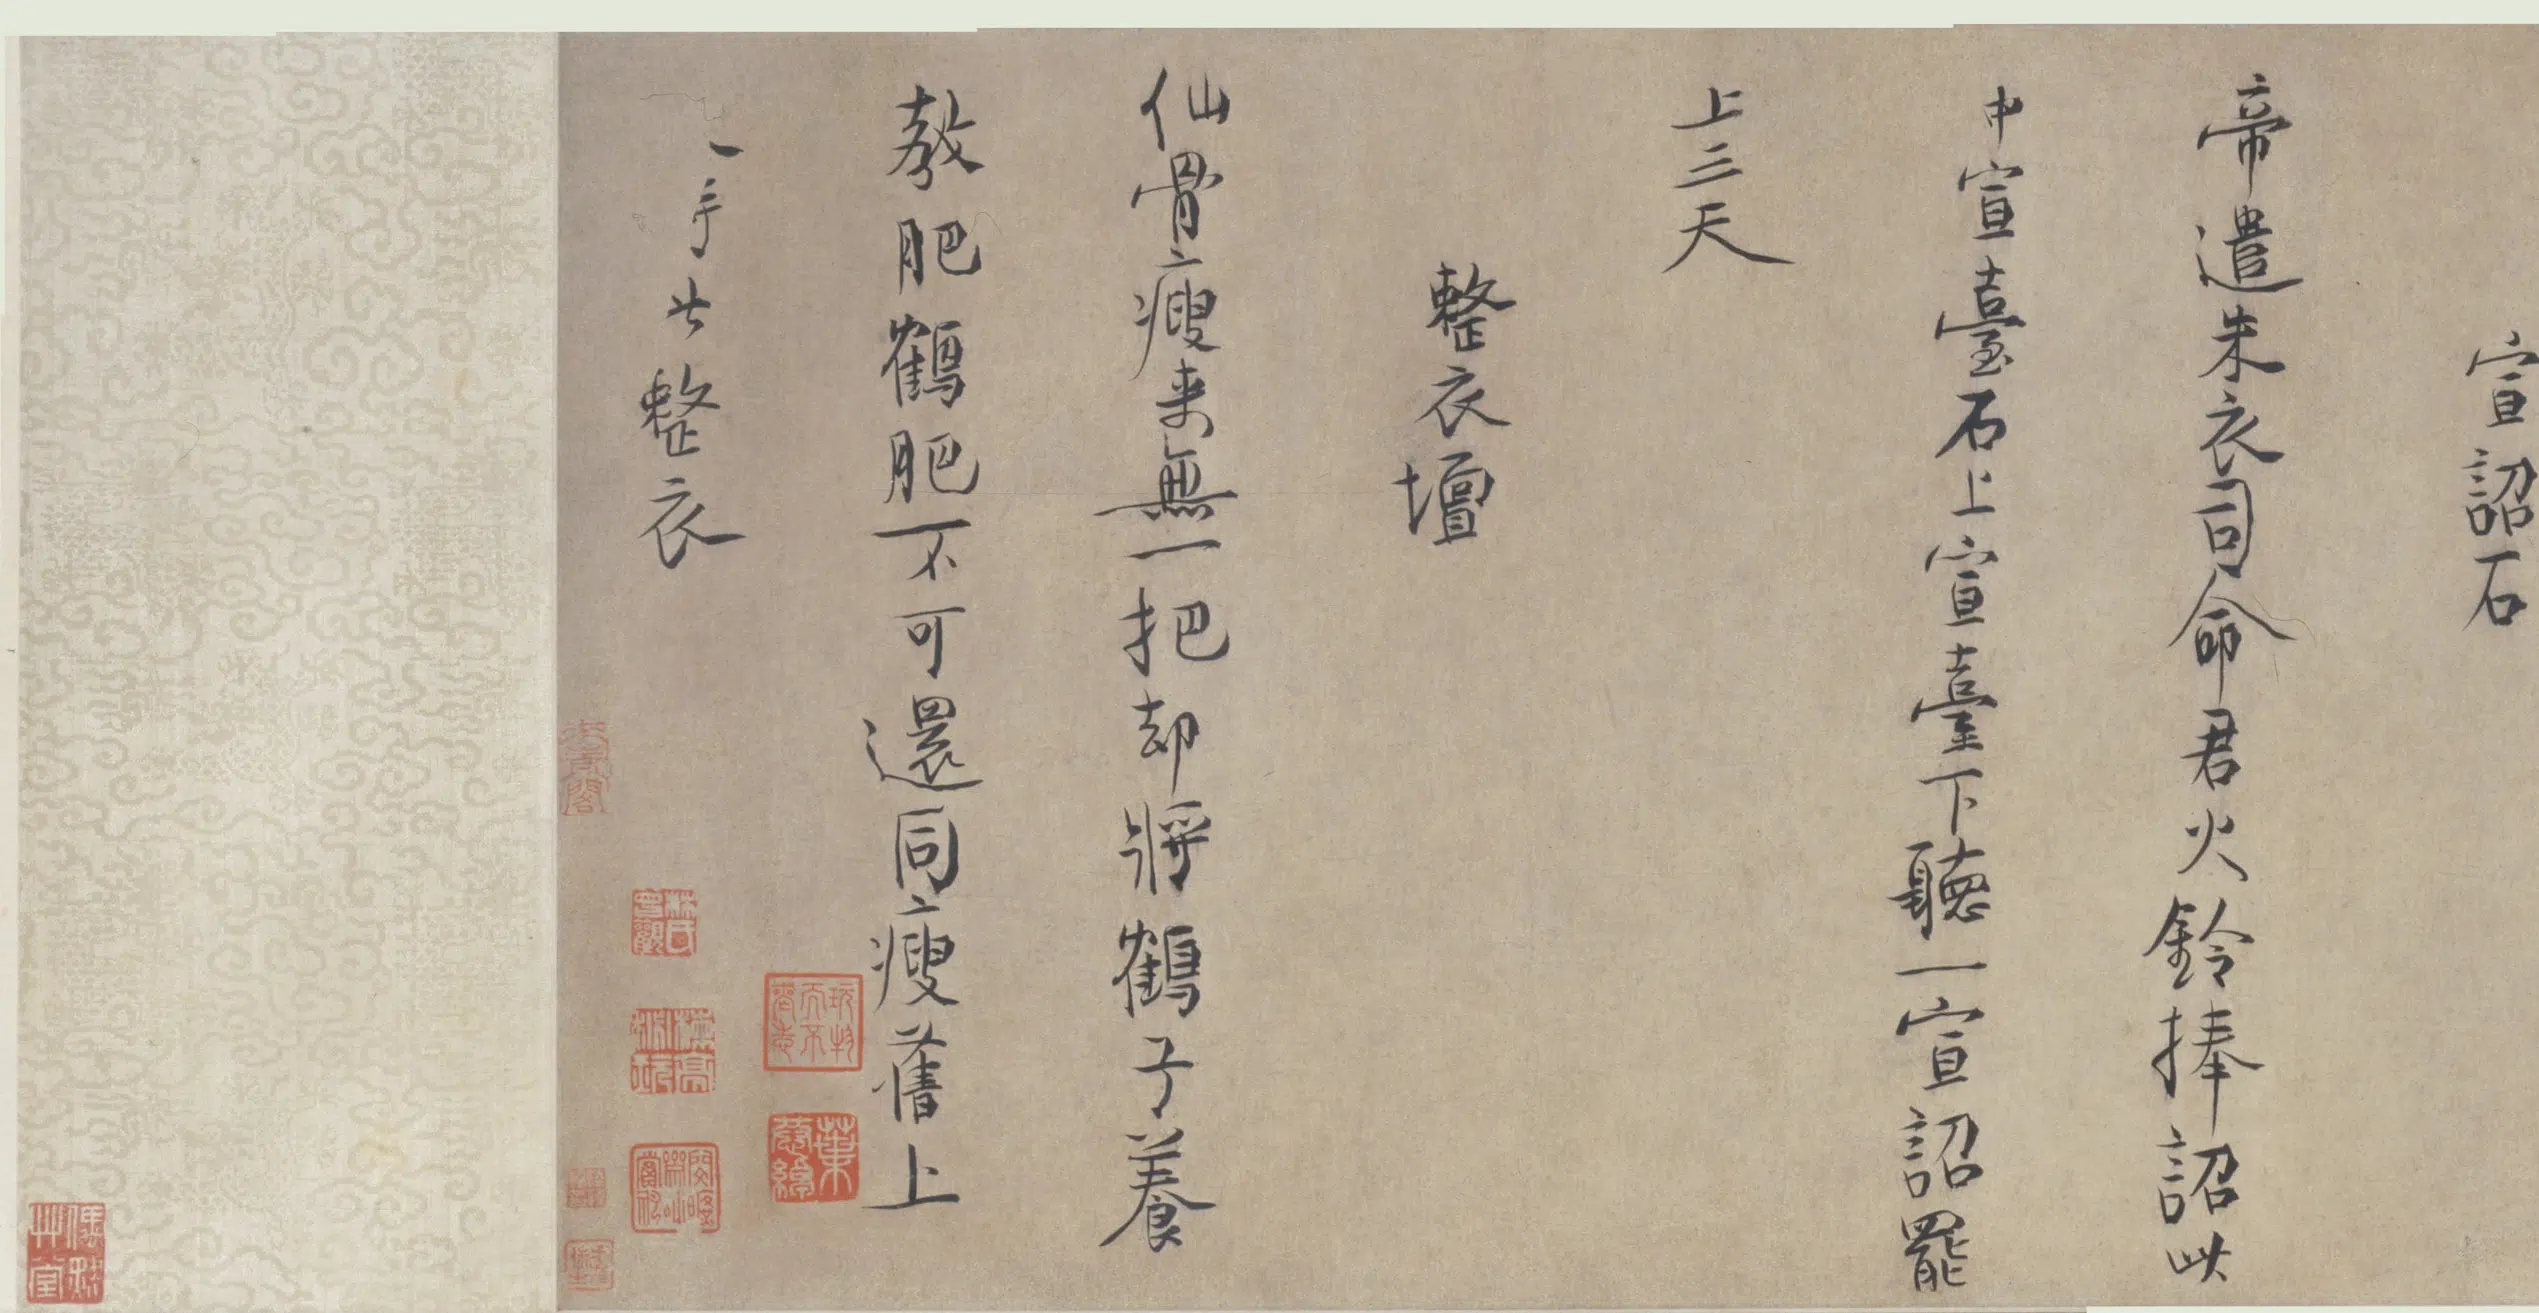 宣詔石
帝遣朱衣司命君火鈴捧詔此
中宣臺石上宣臺下聽一宣詔罷
上三天
整衣壇
仙骨瘦来無一把却將鶴子養
教肥鶴肥不可還同瘦舊上
整衣